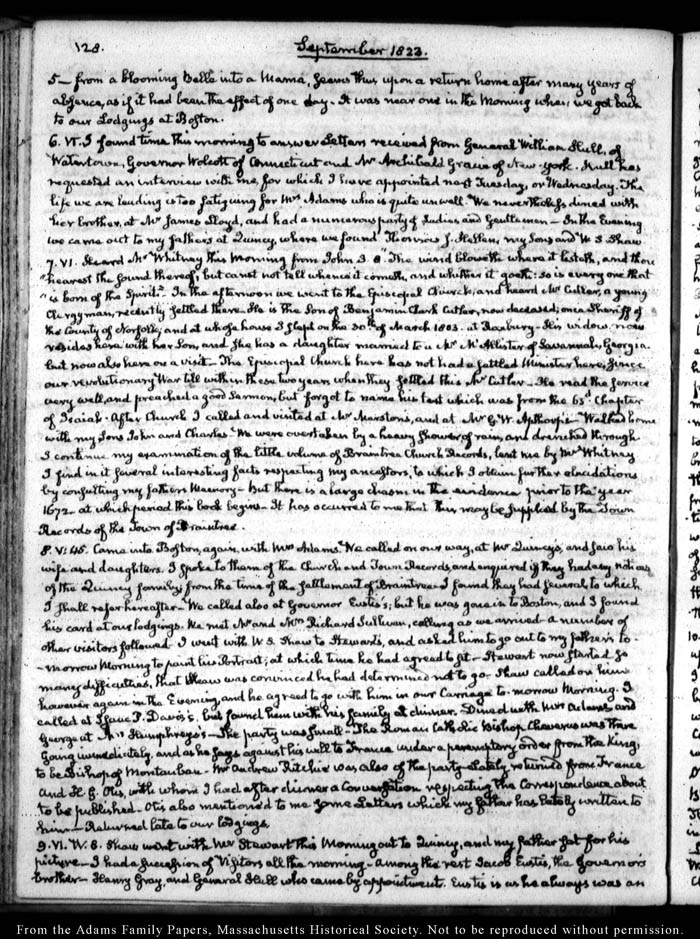 128.
September 1823.
5— from a blooming Belle into a Mama, seems thus upon a return home after many years of
absence, as if it had been the effect of one day— It was near one in the Morning when we got back
to our Lodgings at Boston.
6. VI. I found time this morning to answer Letters received from General William Hull, of
Watertown, Governor Wolcott of Connecticut and Mr Archibald Gracie of New-York. Hull has
requested an interview with me, for which I have appointed next Tuesday, or Wednesday. The
life we are leading is too fatiguing for Mrs Adams who is quite unwell. We nevertheless dined with
her brother, at Mr James Lloyd, and had a numerous party of Ladies and Gentlemen— In the Evening
we came out to my father's at Quincy, where we found Thomas J. Hellen, my Sons and W. S. Shaw
7. VI. Heard Mr Whitney this Morning from John 3. 8. The wind bloweth where it listeth, and thou
"hearest the sound thereof, but canst not tell whence it cometh, and whither it goeth: so is every one that
"is born of the Spirit." In the afternoon we went to the Episcopal Church, and heard Mr Cutler, a young
Clergyman, recently settled there. He is the Son of Benjamin Clark Cutler, now deceased; once Sheriff of
the County of Norfolk, and at whose house I slept on the 30th of March 1803. at Roxbury— His widow now
resides here with her Son, and she has a daughter married to a Mr McAllister of Savannah, Georgia.
but now also here on a visit— The Episcopal Church here has not had a settled Minister here, since
our revolutionary War till within these two years, when they settled this Mr Cutler— He read the service
very well, and preached a good Sermon, but forgot to name his text which was from the 65th Chapter
of Isaiah— After Church I called and visited at Mr Marston's, and at Mr G. W. Apthorp's— Walked home
with my Sons John and Charles— We were overtaken by a heavy shower of rain, and drenched through
I continue my examination of the little volume of Braintree Church Records, lent me by Mr Whitney
I find in it several interesting facts respecting my ancestors, to which I obtain further elucidations
by consulting my father's Memory— But there is a large chasm in the evidence prior to the year
1672. at which period this book begins— It has occurred to me that this may be supplied by the Town
Records of the Town of Braintree.
8. V: 45. Came into Boston, again, with Mrs Adams. We called on our way, at Mr Quincy's, and saw his
wife and daughters. I spoke to them of the Church and Town Records and enquired if they had any notices
of the Quincy family, from the time of the settlement of Braintree— I found they had several to which
I shall refer hereafter— We called also at Governor Eustis's; but he was gone in to Boston, and I found
his card at our lodgings. We met Mr and Mrs Richard Sullivan, calling as we arrived— a number of
other visitors followed— I went with W. S. Shaw to Stewart's, and asked him to go out to my father's to-
-morrow Morning to paint his Portrait; at which time he had agreed to it— Stewart now started so
many difficulties, that Shaw was convinced he had determined not to go— Shaw called on him
however again in the Evening, and he agreed to go with him in our Carriage to-morrow Morning. I
called at Isaac P. Davis's, but found him with his family at dinner. Dined with Mrs Adams and
George at Humphreys's— The party was small— The Roman Catholic Bishop Cheverus was there
going immediately, and as he says against his will to France under a peremptory order from the King,
to be Bishop of Montauban— Mr Andrew Ritchie was also of the party— lately returned from France
and H. G. Otis, with whom I had after dinner a Conversation respecting the Correspondence about
to be published— Otis also mentioned to me some Letters which my father has lately written to
him— Returned late to our lodgings
9. VI. W. S. Shaw went with Mr Stewart this Morning out to Quincy, and my father sat for his
picture— I had a succession of Visitors all the morning— among the rest Jacob Eustis, the Governor's
brother— Henry Gray, and General Hull who came by appointment. Eustis is as he always was an
From the Adams Family Papers, Massachusetts Historical Society. Not to be reproduced without permission.